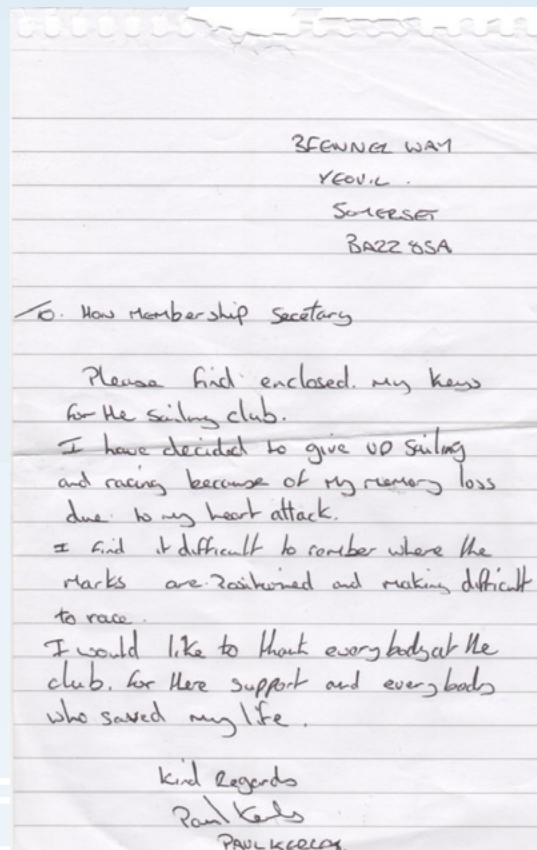 WAY
YEOVIL.
SOMERSET
BA22 8SA
To. Hon Membership Secetary
Please find enclosed. my keys
for the sailing club.
I have decided to give up sailing
and racing because of my memory loss
due to my heart attack.
I find it difficult to rember where the
marks are. Positioned and making difficult
to race.
I would like to thank everybody at the
club. for there support and everybody
who saved my life.
Kind Regards
Paul
PAUL